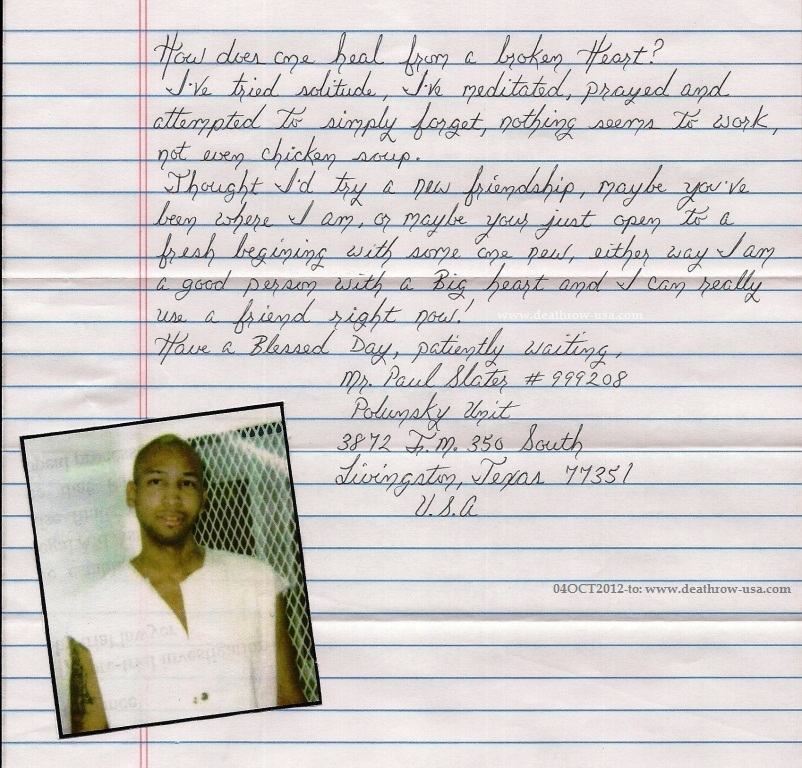 How does one heal from a broken Heart?
I've tried solitude, I've meditated, prayed and
attempted to simply forget, nothing seems to work,
not even chicken soup.
Thought I'd try a new friendship, maybe you've
been where I am, or maybe your just open to a
fresh begining with some one new, either way I am
a good person with a Big heart and I can really
use a friend right now!
www.deathrow-usa.com
Have a Blessed Day, patiently waiting,
Mr. Paul Slater # 999208
Polunsky Unit
3872 F.M. 350 South
Livingston, Texas 77351
U.S.A
04OCT2012-to: www.deathrow-usa.com